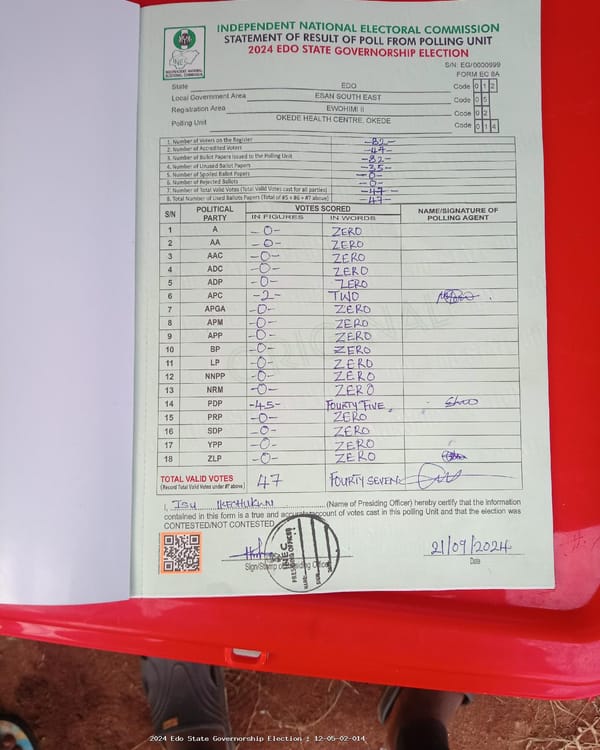 INDEPENDENT NATIONAL ELECTORAL COMMISSION
STATEMENT OF RESULT OF POLL FROM POLLING UNIT
2024 EDO STATE GOVERNORSHIP ELECTION
INEC
INDEPENDENT NATIONAL ELECTORAL COMMISSION
S/N: EG/0000999
FORM EC 8A
State EDO Code 0 1 2
Local Government Area ESAN SOUTH EAST Code 0 5
Registration Area EWOHIMI II Code 0 2
Polling Unit OKEDE HEALTH CENTRE, OKEDE Code 0 1 4
1. Number of Voters on the Register -82-
2. Number of Accredited Voters -47-
3. Number of Ballot Papers Issued to the Polling Unit -82-
4. Number of Unused Ballot Papers -35-
5. Number of Spoiled Ballot Papers -0-
6. Number of Rejected Ballots -0-
7. Number of Total Valid Votes (Total Valid Votes cast for all parties) -47-
8. Total Number of Used Ballots Papers (Total of #5 + #6 + #7 above) -47-
S/N POLITICAL PARTY VOTES SCORED NAME/SIGNATURE OF POLLING AGENT
IN FIGURES IN WORDS
1 A -0- ZERO
2 AA -0- ZERO
3 AAC -0- ZERO
4 ADC -0- ZERO
5 ADP -0- ZERO
6 APC -2- TWO
7 APGA -0- ZERO
8 APM -0- ZERO
9 APP -0- ZERO
10 BP -0- ZERO
11 LP -0- ZERO
12 NNPP -0- ZERO
13 NRM -0- ZERO
14 PDP -45- FOURTY FIVE
15 PRP -0- ZERO
16 SDP -0- ZERO
17 YPP -0- ZERO
18 ZLP -0- ZERO
TOTAL VALID VOTES 47 FOURTY SEVEN
(Record Total Valid Votes under #7 above)
ORIGINAL
I, ISU IKECHUKWU (Name of Presiding Officer) hereby certify that the information
contained in this form is a true and accurate account of votes cast in this polling Unit and that the election was
CONTESTED/NOT CONTESTED.
INEC
PRESIDING OFFICER
21/09/2024
Sign/Stamp of Presiding Officer Date
2024 Edo State Governorship Election : 12-05-02-014